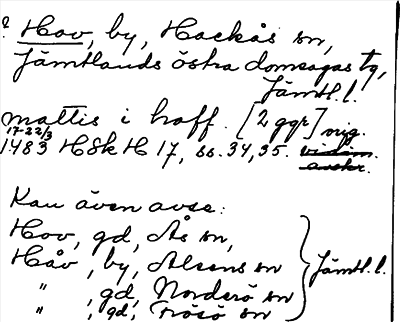 ? Hov, by, Hackås sn,
Jämtlands östra domsagas tg,
Jämtl. l.
mattis i hoff. [2 ggr] nig.
17-22/3
1483 HSkH 17, ss. 34, 35. vidim.
avskr.
Kan även avse:
Hov, gd, Ås sn,
Håv, by, Alsens sn
" , gd, Norderö sn
" , gd, Frösö sn
Jämtl. l.